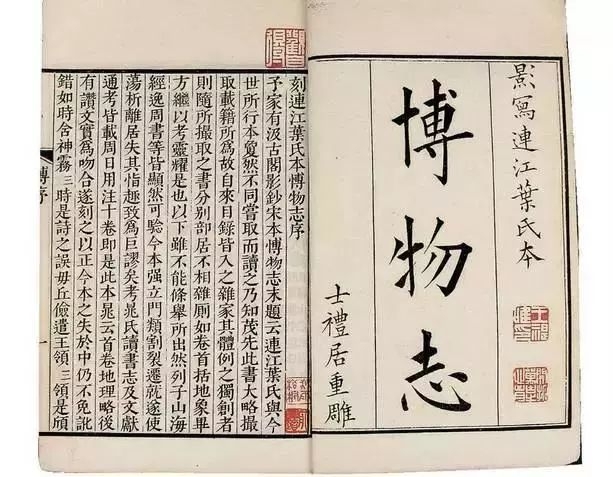 影寫連江葉氏本
博物志
士禮居重雕
刻連江葉氏本博物志序
予家有汲古閣影鈔宋本博物志末題云連江葉氏與今
世所行本敻然不同嘗取而讀之乃知茂先此書大略撮
取載籍所爲故自來目錄皆入之雜家其體例之獨創者
則隨所撮取之書分別部居不相雜厠如卷首括地象畢
方繼以考靈耀是也以下雖不能條舉所出然列子山海
經逸周書等皆顯然可驗今本强立門類割裂遷就遂使
蕩析離居失其指趣致爲巨謬矣考晁氏讀書志及文獻
通考皆載周日用注十卷即是此本晁云首卷地理略後
有讚文實爲吻合遂刻之以正今本之失於中仍不免訛
錯如時含神霧三時是詩之誤毋丘儉遣王領三領是頎
博序
一